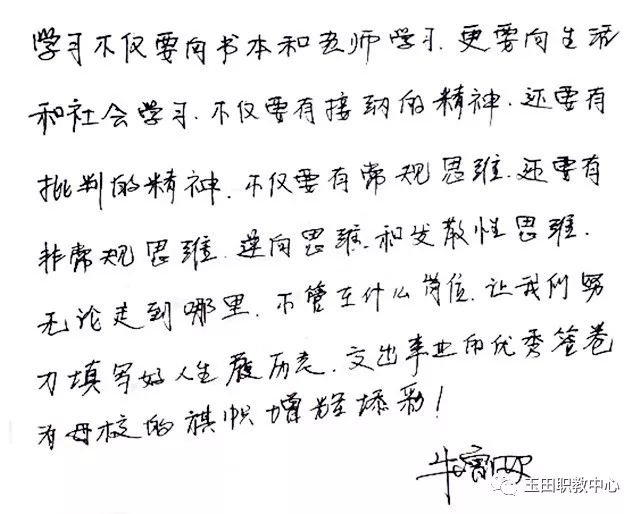 学习不仅要向书本和老师学习.更要向生活
和社会学习.不仅要有接纳的精神.还要有
批判的精神.不仅要有常规思维.还要有
非常规思维.逆向思维.和发散性思维.
无论走到哪里.不管在什么岗位.让我们努
力填写好人生履历表.交出事业的优秀答卷
为母校的旗帜增辉添彩!
玉田职教中心